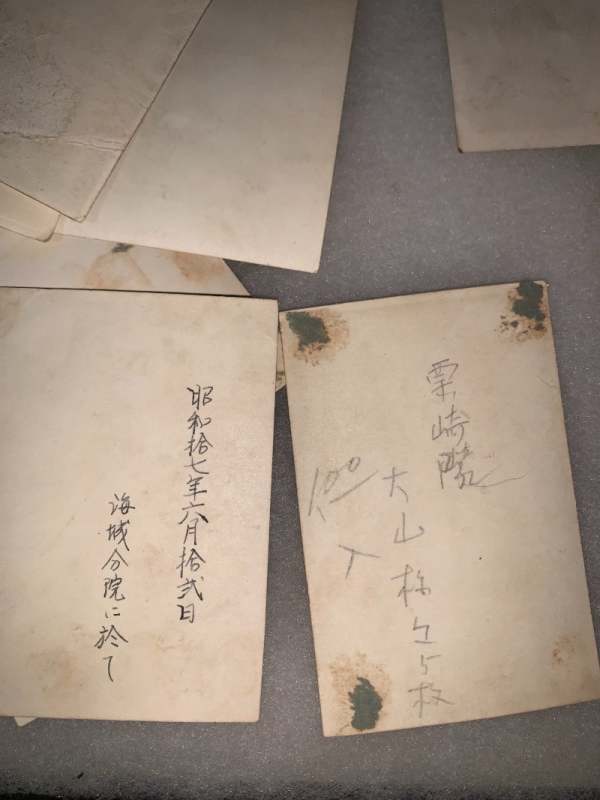 昭和拾七年六月拾弐日
海城分院に於て
栗崎隊
大山
5枚